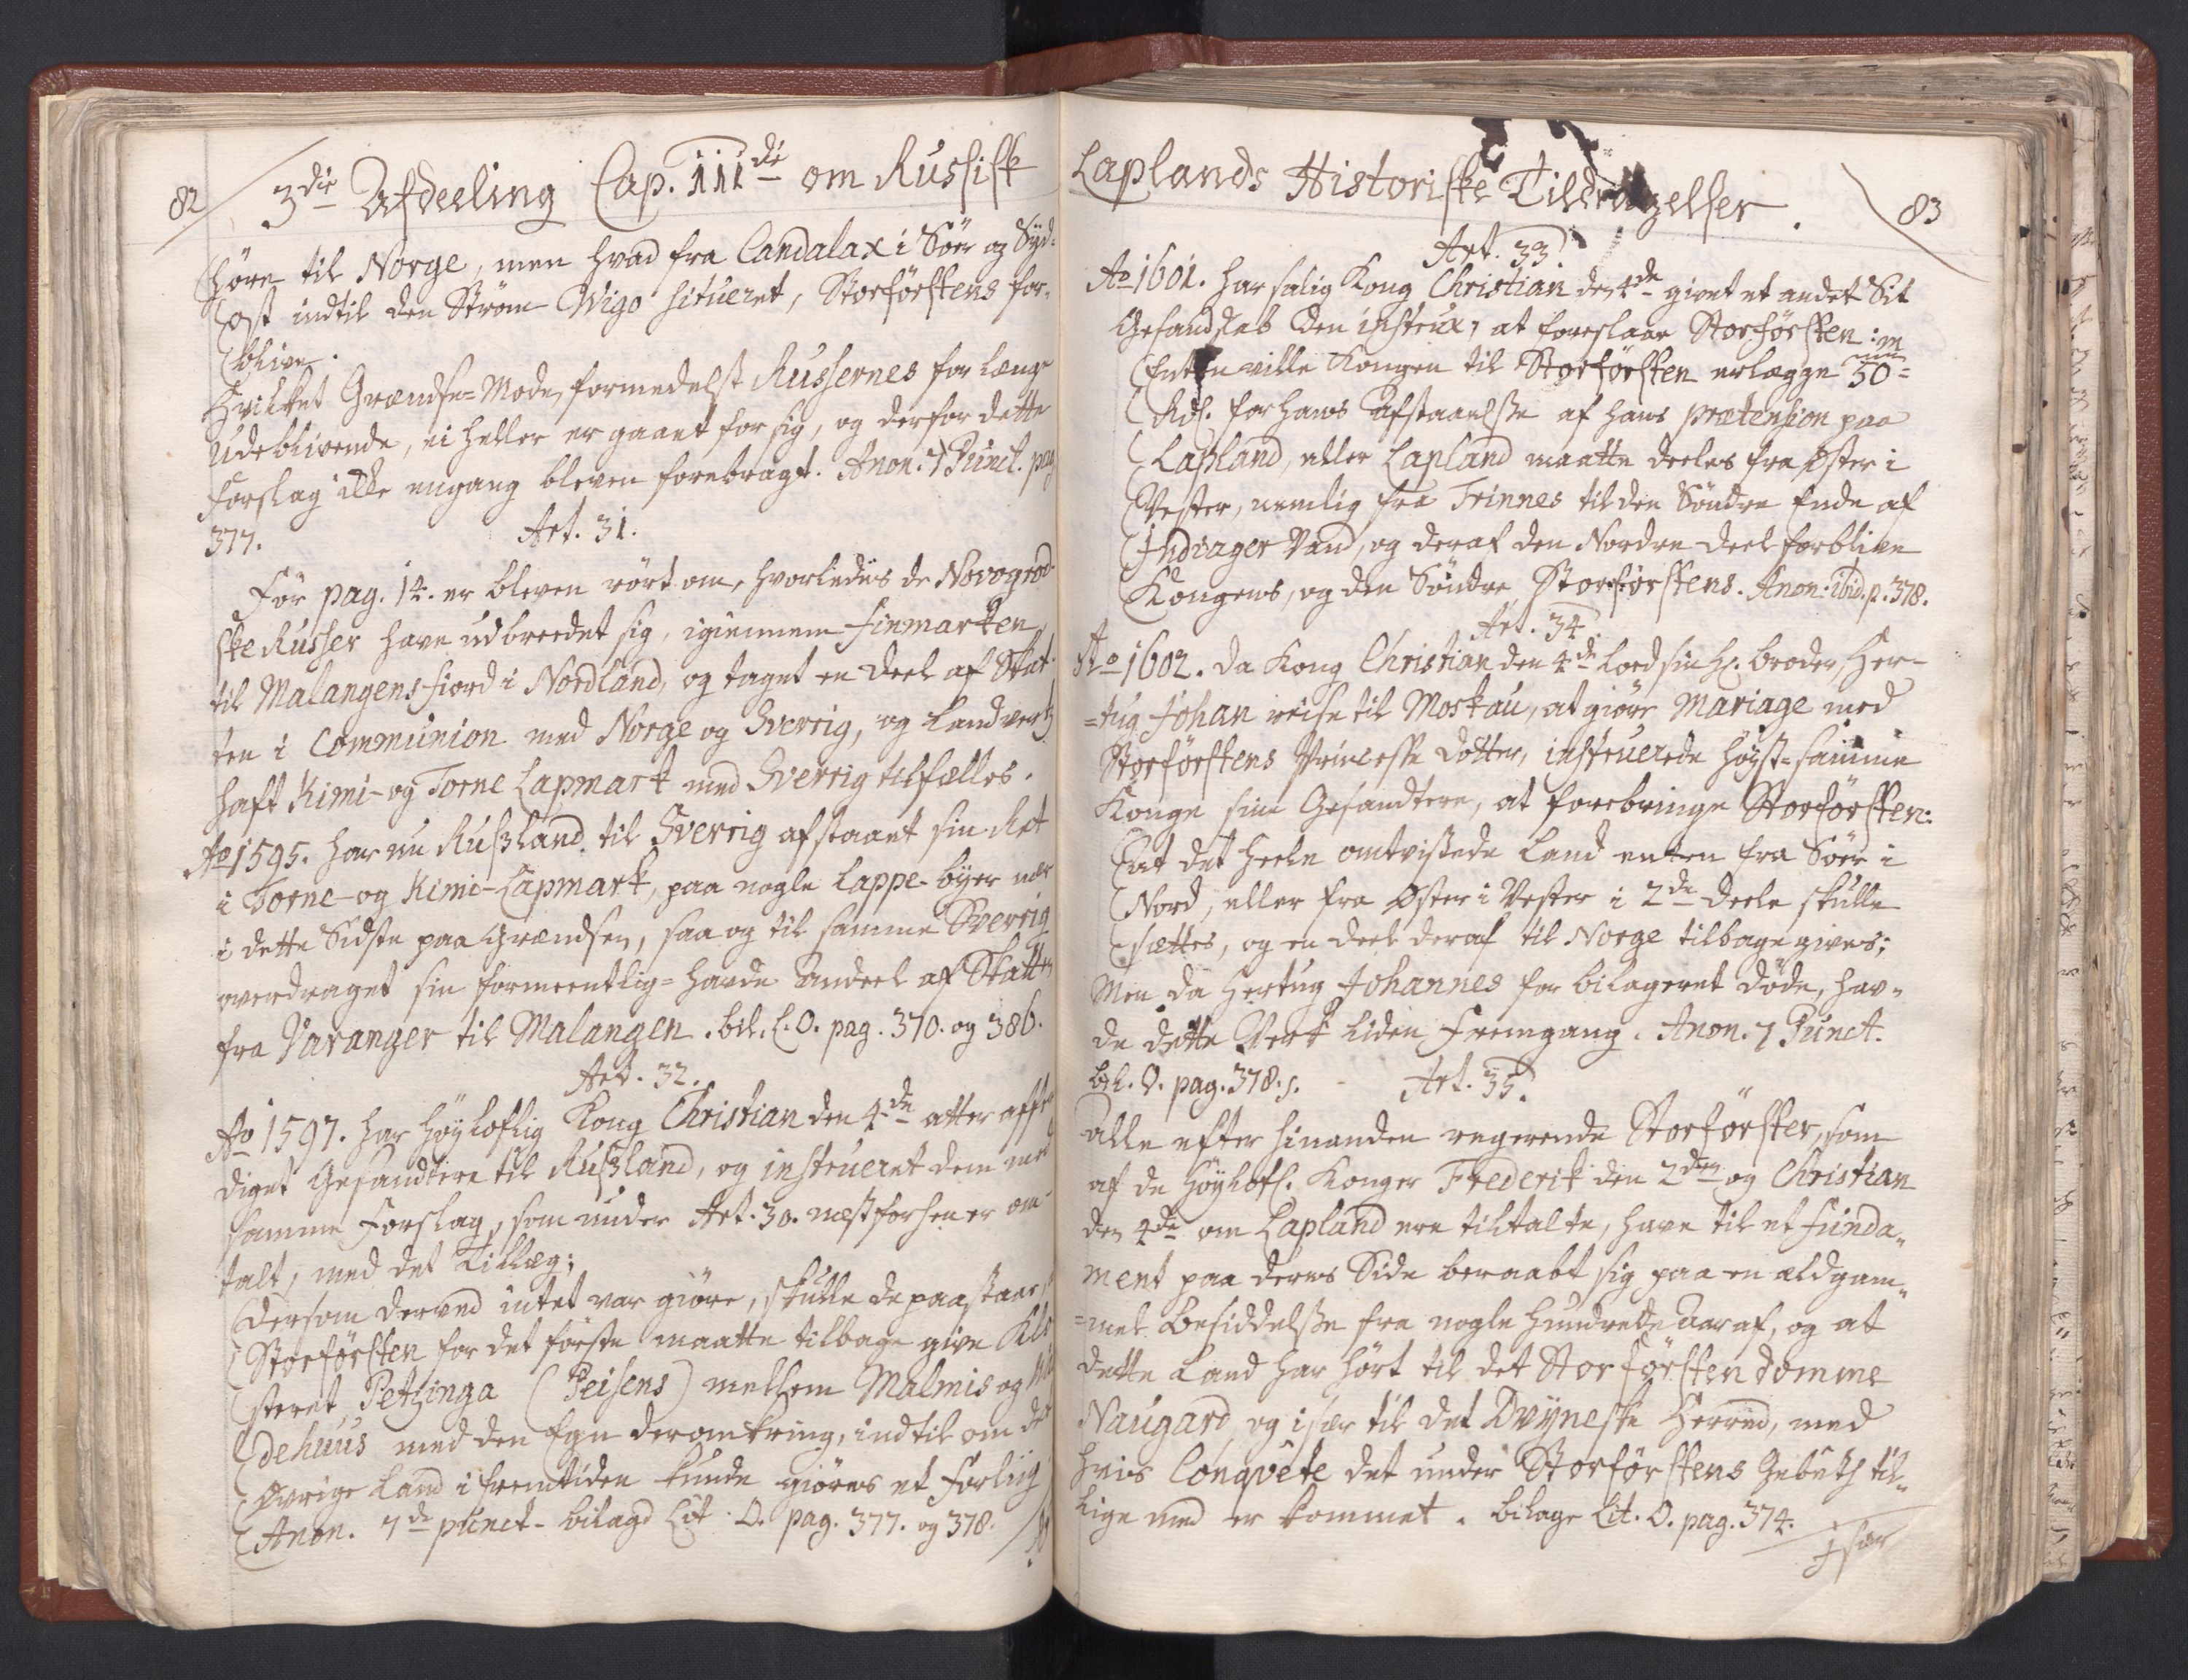 82
3die Afdeeling Cap. IIIde om Russisk
höre til Norge, men hvad fra Candalax i Sör og Syd-
ost indtil den Ström Wigo situeret, Storförstens for-
blive.
Hvilket Grændse-Mode, formedelst Russernes for længe
Udeblivende, ei heller er gaaet for sig, og derfor dette
Forslag ikke engang bleven forebragt. Anon. 7 Punct. pag
377.
Art. 31.
Før pag. 14. er bleven rört om, hvorledes de Novogrod-
ske Russer have udbreedet sig, igiennem Finmarken
til Malangens-fiord i Nordland, og taget en Deel af Skat-
ten i Communion med Norge og Sverrig, og Landverts
haft Kimi- og Torne Lapmark med Sverrig tilfælles.
Ao 1595. har nu Rusland til Sverrig afstaaet sin Ret
i Torne- og Kimi-Lapmark, paa nogle Lappe-byer nær
i dette Sidste paa Grændsen, saa og til samme Sverrig
overdraget sin formeentlig-havde Andeel af Skatten
fra Varanger til Malangen. bil. L. O. pag. 370. og 386.
Art. 32.
Ao 1597. har Høyloflig Kong Christian den 4de atter affær-
diget Gesandtere til Rusland, og instrueret dem med
samme Forslag, som under Art. 30. næst forhen er om-
talt, med det Tillæg;
Dersom derved intet var giøre, skulle de paastaae,
Storförsten for det förste maatte tilbage give Klo-
steret Petzinga (Peisens) mellem Malmis og
dehuus med den Egn deromkring, indtil om det
Øvrige Land i fremtiden kunde giøres et Forliig
Anon. 7de punct. bilage Lit. O. pag. 377. og 378.
Ao
Laplands Historiske Tildragelser.
83
Art. 33.
Ao 1601. har salig Kong Christian den 4de givet et andet Sit
Gesandskab den instrux, at foreslaae Storförsten:
Enten ville Kongen til Storförsten erlægge 50 m
Rdl. for hans Afstaaelsse af hans prætension paa
Lapland, eller Lapland maatte deeles fra Øster i
Vester, nemlig fra Trinnes til den Söndre Ende af
Indiager Vand, og deraf den Nordre Deel forblive
Kongens, og den Söndre, Storförstens. Anon: ibid. p. 378.
Art. 34.
Ao 1602. da Kong Christian den 4de loed sin Hr. broder, Her-
=tug Johan reise til Moskau, at giøre Mariage med
Storförstens Princesse Dotter, instruerede høyst-samme
Konge sine Gesandtere, at forebringe Storförsten:
at det heele omtvistede Land enten fra Sör i
Nord, eller fra Øster i Vester i 2de Deele skulle
sættes, og en Deel deraf til Norge tilbagegives;
Men da Hertug Johannes for bilageret døde, hav-
de dette Verk liden Fremgang. Anon. 7 Punct.
bil. O. pag. 378. s.
Art. 35.
Alle efter hinanden regerende Storförster, som
af de Høylofl. Konger Frederik den 2den og Christian
den 4de om Lapland ere tiltalte, have til et funda-
ment paa deres Side beraabt sig paa en ældgam-
=mel Besiddelsse fra nogle hundrede Aar af, og at
dette Land har hört til det Storförstendomme
Naugard, og især til det Dvyneske Herred, med
hvis Conqvête det under Storförstens Gebeth til-
lige med er kommet. bilage Lit. O. pag. 374.
Især